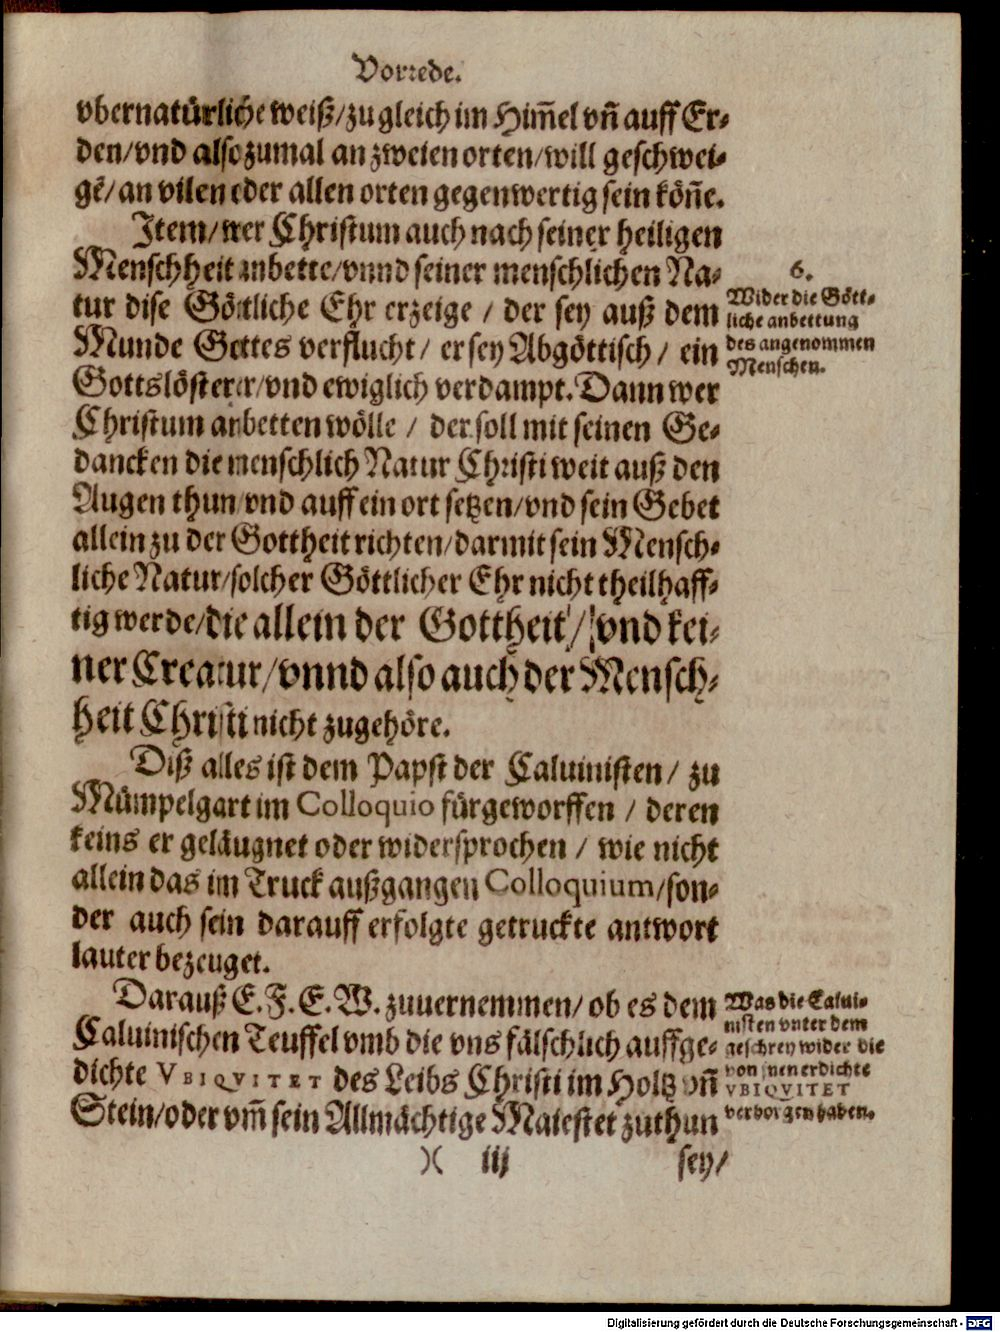 Vorrede.
vbernatürliche weiß/zu gleich im Him̃el vñ auff Er-
den/vnd also zumal an zweien orten/will geschwei-
gẽ/an vilen oder allen orten gegenwertig sein köñe.
Item/wer Christum auch nach seiner heiligen
Menschheit anbette/vnnd seiner menschlichen Na-
tur dise Göttliche Ehr erzeige / der sey auß dem
Munde Gottes verflucht / er sey Abgöttisch / ein
Gottslösterer/vnd ewiglich verdampt. Dann wer
Christum anbetten wölle / der soll mit seinen Ge-
dancken die menschlich Natur Christi weit auß den
Augen thun/vnd auff ein ort setzen/vnd sein Gebet
allein zu der Gottheit richten/darmit sein Mensch-
liche Natur/solcher Göttlicher Ehr nicht theilhaff-
tig werde/die allein der Gottheit/vnd kei-
ner Creatur/vnnd also auch der Mensch-
heit Christi nicht zugehöre.
6.
Wider die Gött-
liche anbettung
des angenommen
Menschen.
Diß alles ist dem Papst der Caluinisten / zu
Mümpelgart im Colloquio fürgeworffen / deren
keins er geläugnet oder widersprochen / wie nicht
allein das im Truck außgangen Colloquium/son-
der auch sein darauff erfolgte getruckte antwort
lauter bezeuget.
Darauß E. F. E. W. zuuernemmen/ob es dem
Caluinischen Teuffel vmb die vns fälschlich auffge-
dichte VBIQVITET des Leibs Christi im Holtz vñ
Stein/oder vm̃ sein Allmächtige Maiestet zuthun
Was die Calui-
nisten vnter dem
geschrey wider die
von jnen erdichte
VBIQVITET
verborgen haben.
)( iij
sey/
Digitalisierung gefördert durch die Deutsche Forschungsgemeinschaft - DFG